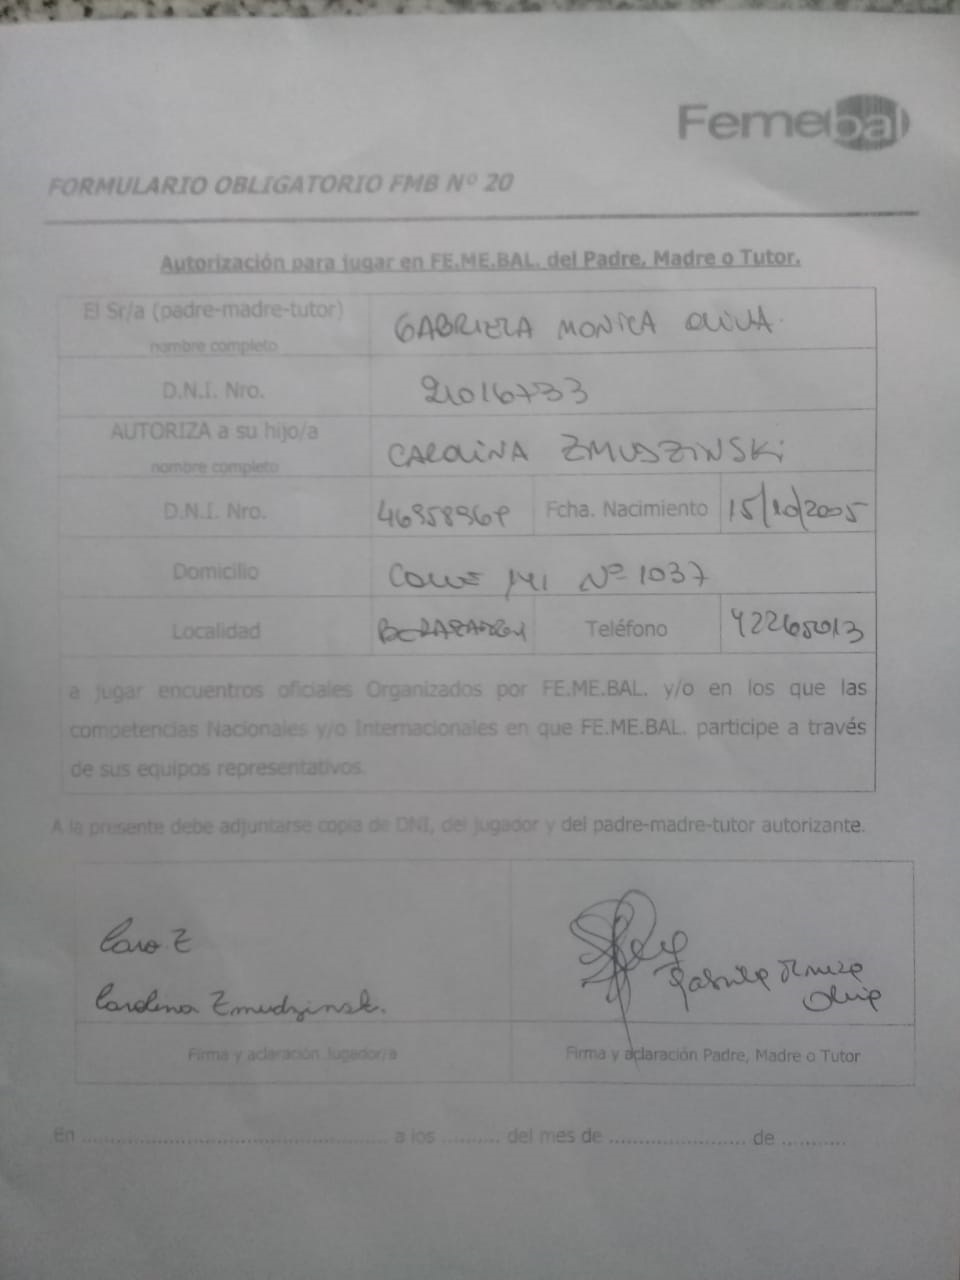 Femebal
FORMULARIO OBLIGATORIO FMB Nº 20
Autorización para jugar en FE.ME.BAL. del Padre, Madre o Tutor.
El Sr/a (padre-madre-tutor)
nombre completo
GABRIELA MONICA OLIVA
D.N.I. Nro.
21016733
AUTORIZA a su hijo/a
nombre completo
CAROLINA ZMUDZINSKi
D.N.I. Nro.
Fcha. Nacimiento
15/10/2005
Domicilio
CALLE 141 Nº 1037
Localidad
BERAZATEGUI
Teléfono
42265013
a jugar encuentros oficiales Organizados por FE.ME.BAL. y/o en los que las
competencias Nacionales y/o Internacionales en que FE.ME.BAL. participe a través
de sus equipos representativos.
A la presente debe adjuntarse copia de DNI, del jugador y del padre-madre-tutor autorizante.
Caro Z
Carolina Zmudzinski.
Gabriela Monica
Oliva
Firma y aclaración Jugador/a
Firma y aclaración Padre, Madre o Tutor
En ............................................... a los .......... del mes de ....................... de ...........